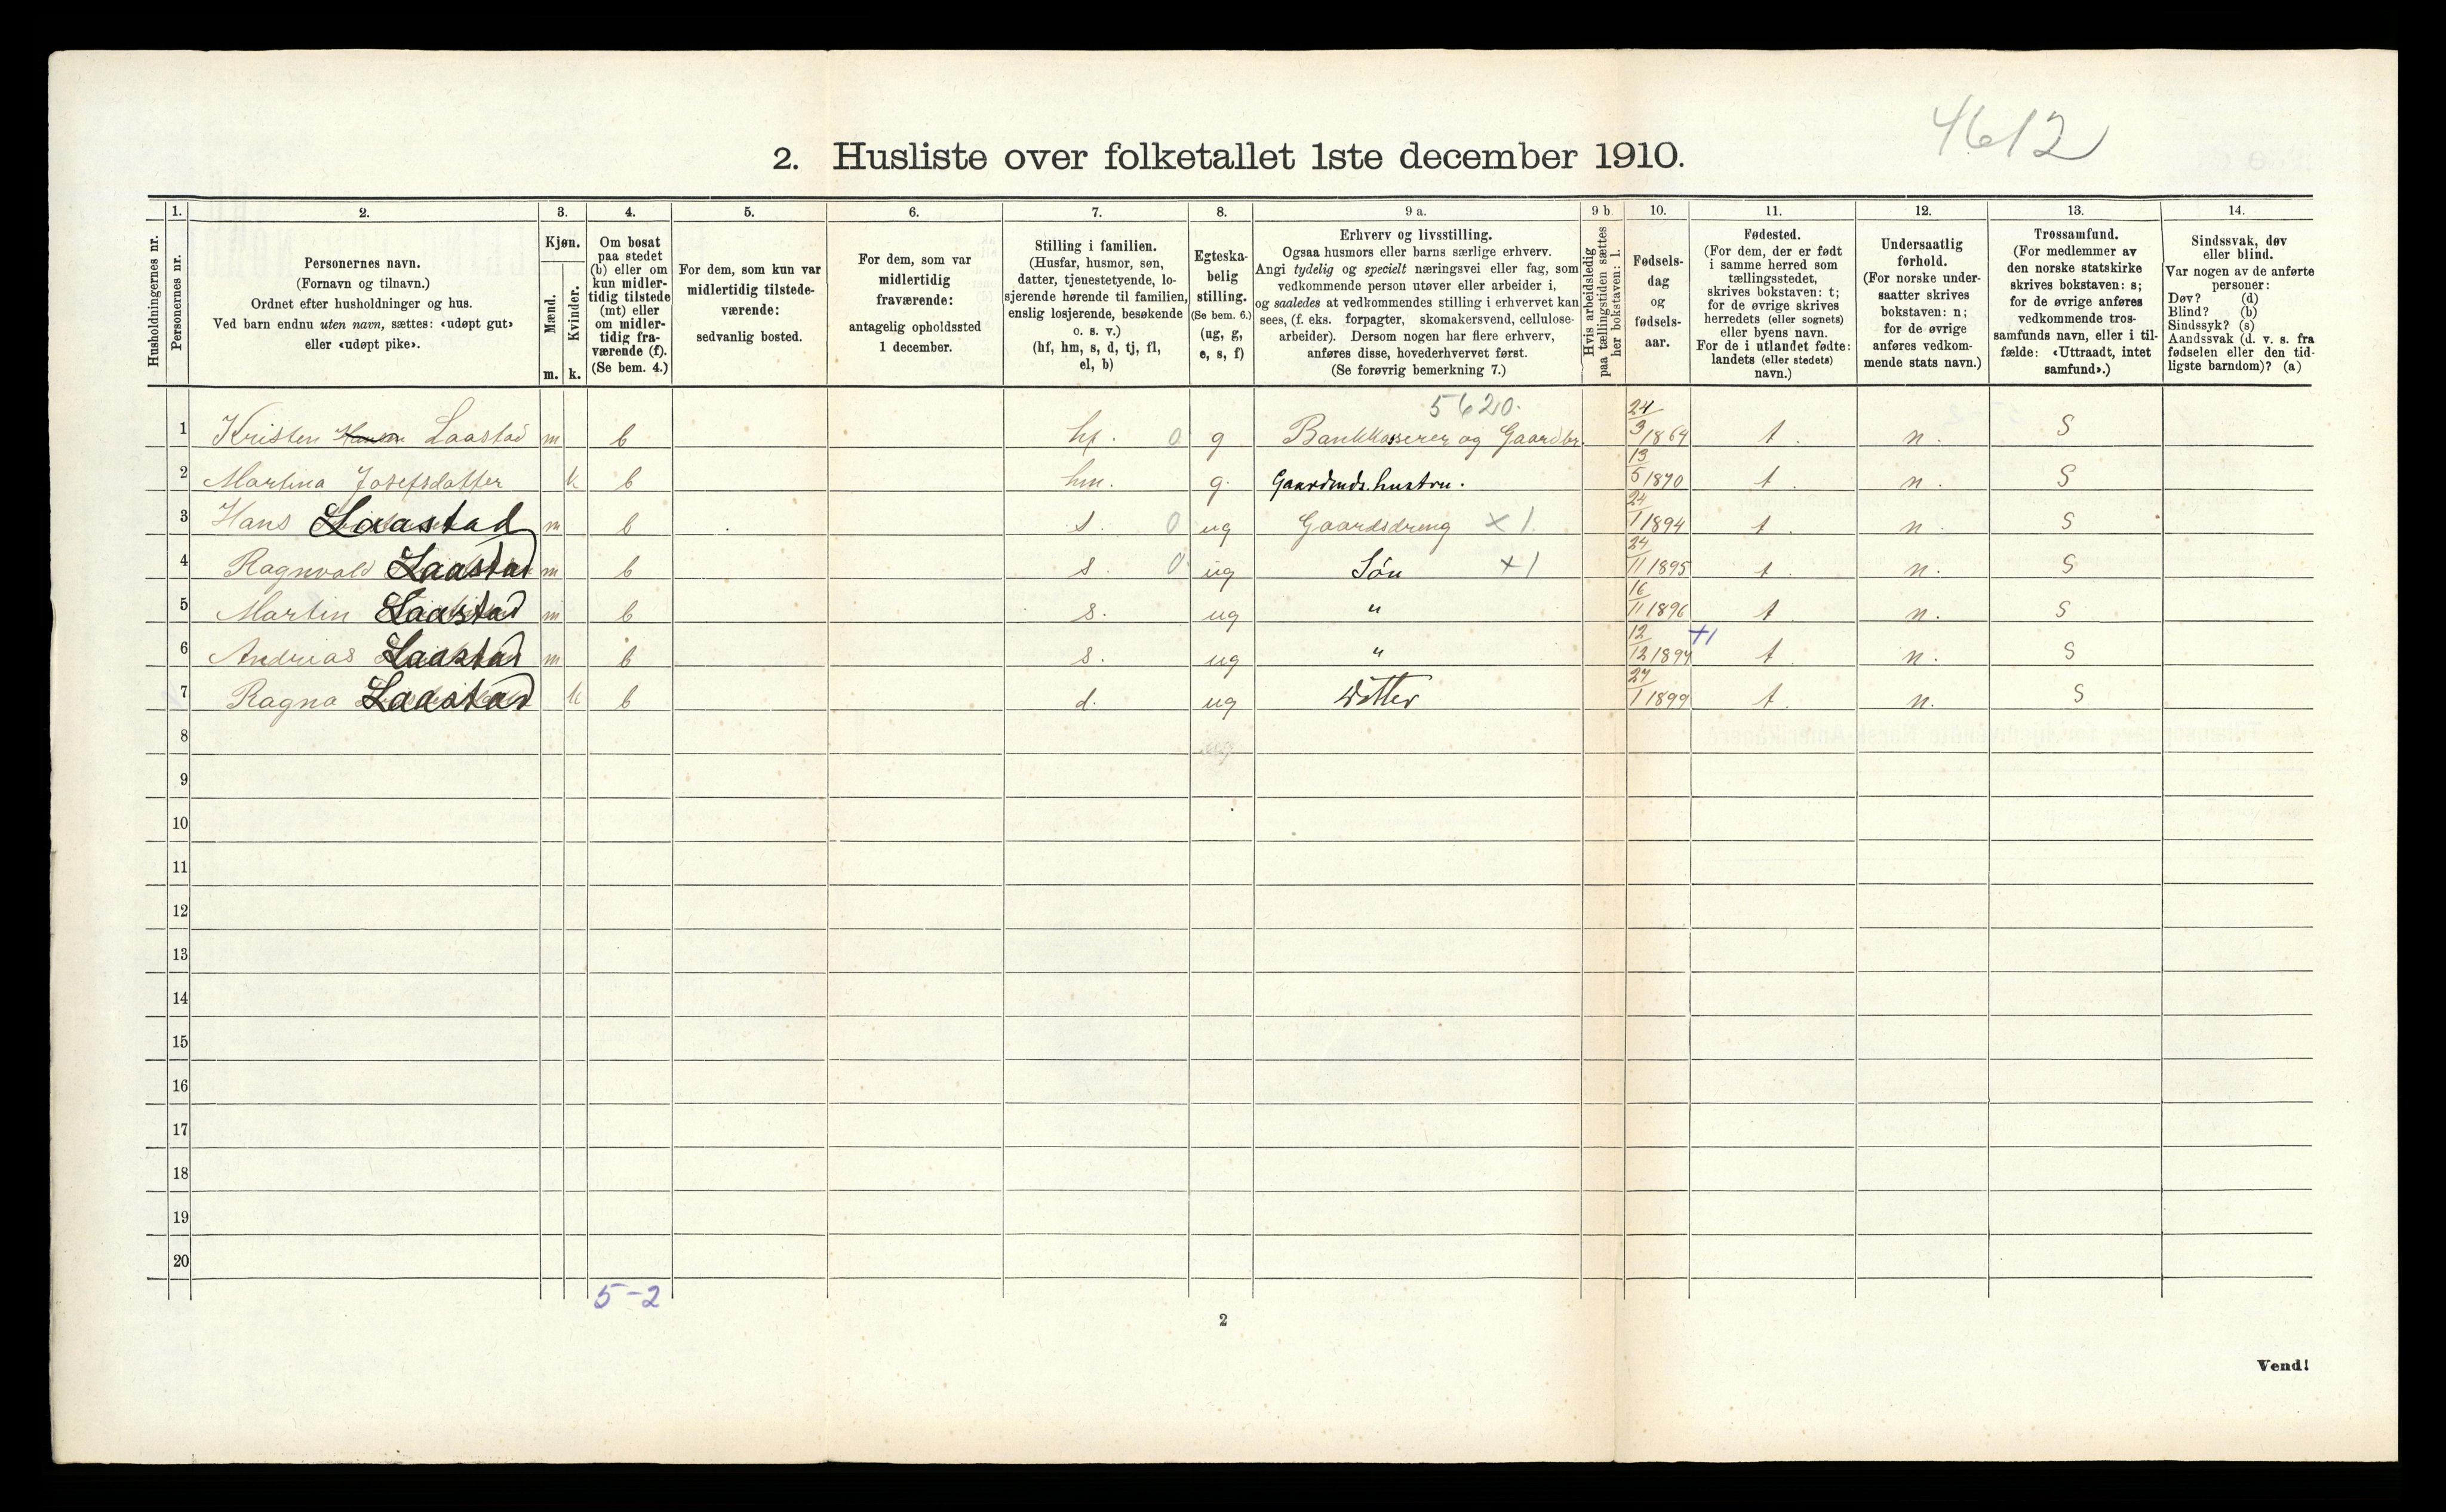 4612
2. Husliste over folketallet 1ste december 1910.
1. 2. 3. 4. 5. 6. 7. 8. 9 a. 9 b. 10. 11. 12. 13. 14.
Husholdningernes nr.
Personernes nr.
Personernes navn.
(Fornavn og tilnavn.)
Ordnet efter husholdninger og hus.
Ved barn endnu uten navn, sættes: «udøpt gut»
eller «udøpt pike».
Kjøn.
Mænd.
Kvinder.
m. k.
Om bosat
paa stedet
(b) eller om
kun midler-
tidig tilstede
(mt) eller
om midler-
tidig fra-
værende (f).
(Se bem. 4.)
For dem, som kun var
midlertidig tilstede-
værende:
sedvanlig bosted.
For dem, som var
midlertidig
fraværende:
antagelig opholdssted
1 december.
Stilling i familien.
(Husfar, husmor, søn,
datter, tjenestetyende, lo-
sjerende hørende til familien,
enslig losjerende, besøkende
o. s. v.)
(hf, hm, s, d, tj, fl,
el, b)
Egteska-
belig
stilling.
(Se bem. 6.)
(ug, g,
e, s, f)
Erhverv og livsstilling.
Ogsaa husmors eller barns særlige erhverv.
Angi tydelig og specielt næringsvei eller fag, som
vedkommende person utøver eller arbeider i,
og saaledes at vedkommendes stilling i erhvervet kan
sees, (f. eks. forpagter, skomakersvend, cellulose-
arbeider). Dersom nogen har flere erhverv,
anføres disse, hovederhvervet først.
(Se forøvrig bemerkning 7.)
Hvis arbeidsledig
paa tællingstiden sættes
her bokstaven: l.
Fødsels-
dag
og
fødsels-
aar.
Fødested.
(For dem, der er født
i samme herred som
tællingsstedet,
skrives bokstaven: t;
for de øvrige skrives
herredets (eller sognets)
eller byens navn.
For de i utlandet fødte:
landets (eller stedets)
navn.)
Undersaatlig
forhold.
(For norske under-
saatter skrives
bokstaven: n;
for de øvrige
anføres vedkom-
mende stats navn.)
Trossamfund.
(For medlemmer av
den norske statskirke
skrives bokstaven: s;
for de øvrige anføres
vedkommende tros-
samfunds navn, eller i til-
fælde: «Uttraadt, intet
samfund».)
Sindssvak, døv
eller blind.
Var nogen av de anførte
personer:
Døv? (d)
Blind? (b)
Sindssyk? (s)
Aandssvak (d. v. s. fra
fødselen eller den tid-
ligste barndom)? (a)
5620.
1 Kristen Hansen Laastad m b hf. 0 g Bankkasserer og Gaardbr. 24/3 1864 t. n. S
2 Martina Josefsdatter k b hm. g. Gaardmds. hustru. 13/5 1870 t. n. S
3 Hans Laastad m b s. 0 ug Gaardsdreng x 1 24/1 1894 t n. S
4 Ragnvald Laastad m b s. 0 ug Søn x 1 24/11 1895 t. n. S
5 Martin Laastad m b s. ug " 16/11 1896 t n. S
6 Andreas Laastad m b s. ug " 12/12 1897 +1 t. n. S
7 Ragna Laastad k b d. ug Datter 27/1 1899 t. n. S
8
9
10
11
12
13
14
15
16
17
18
19
20
5-2
2
Vend!